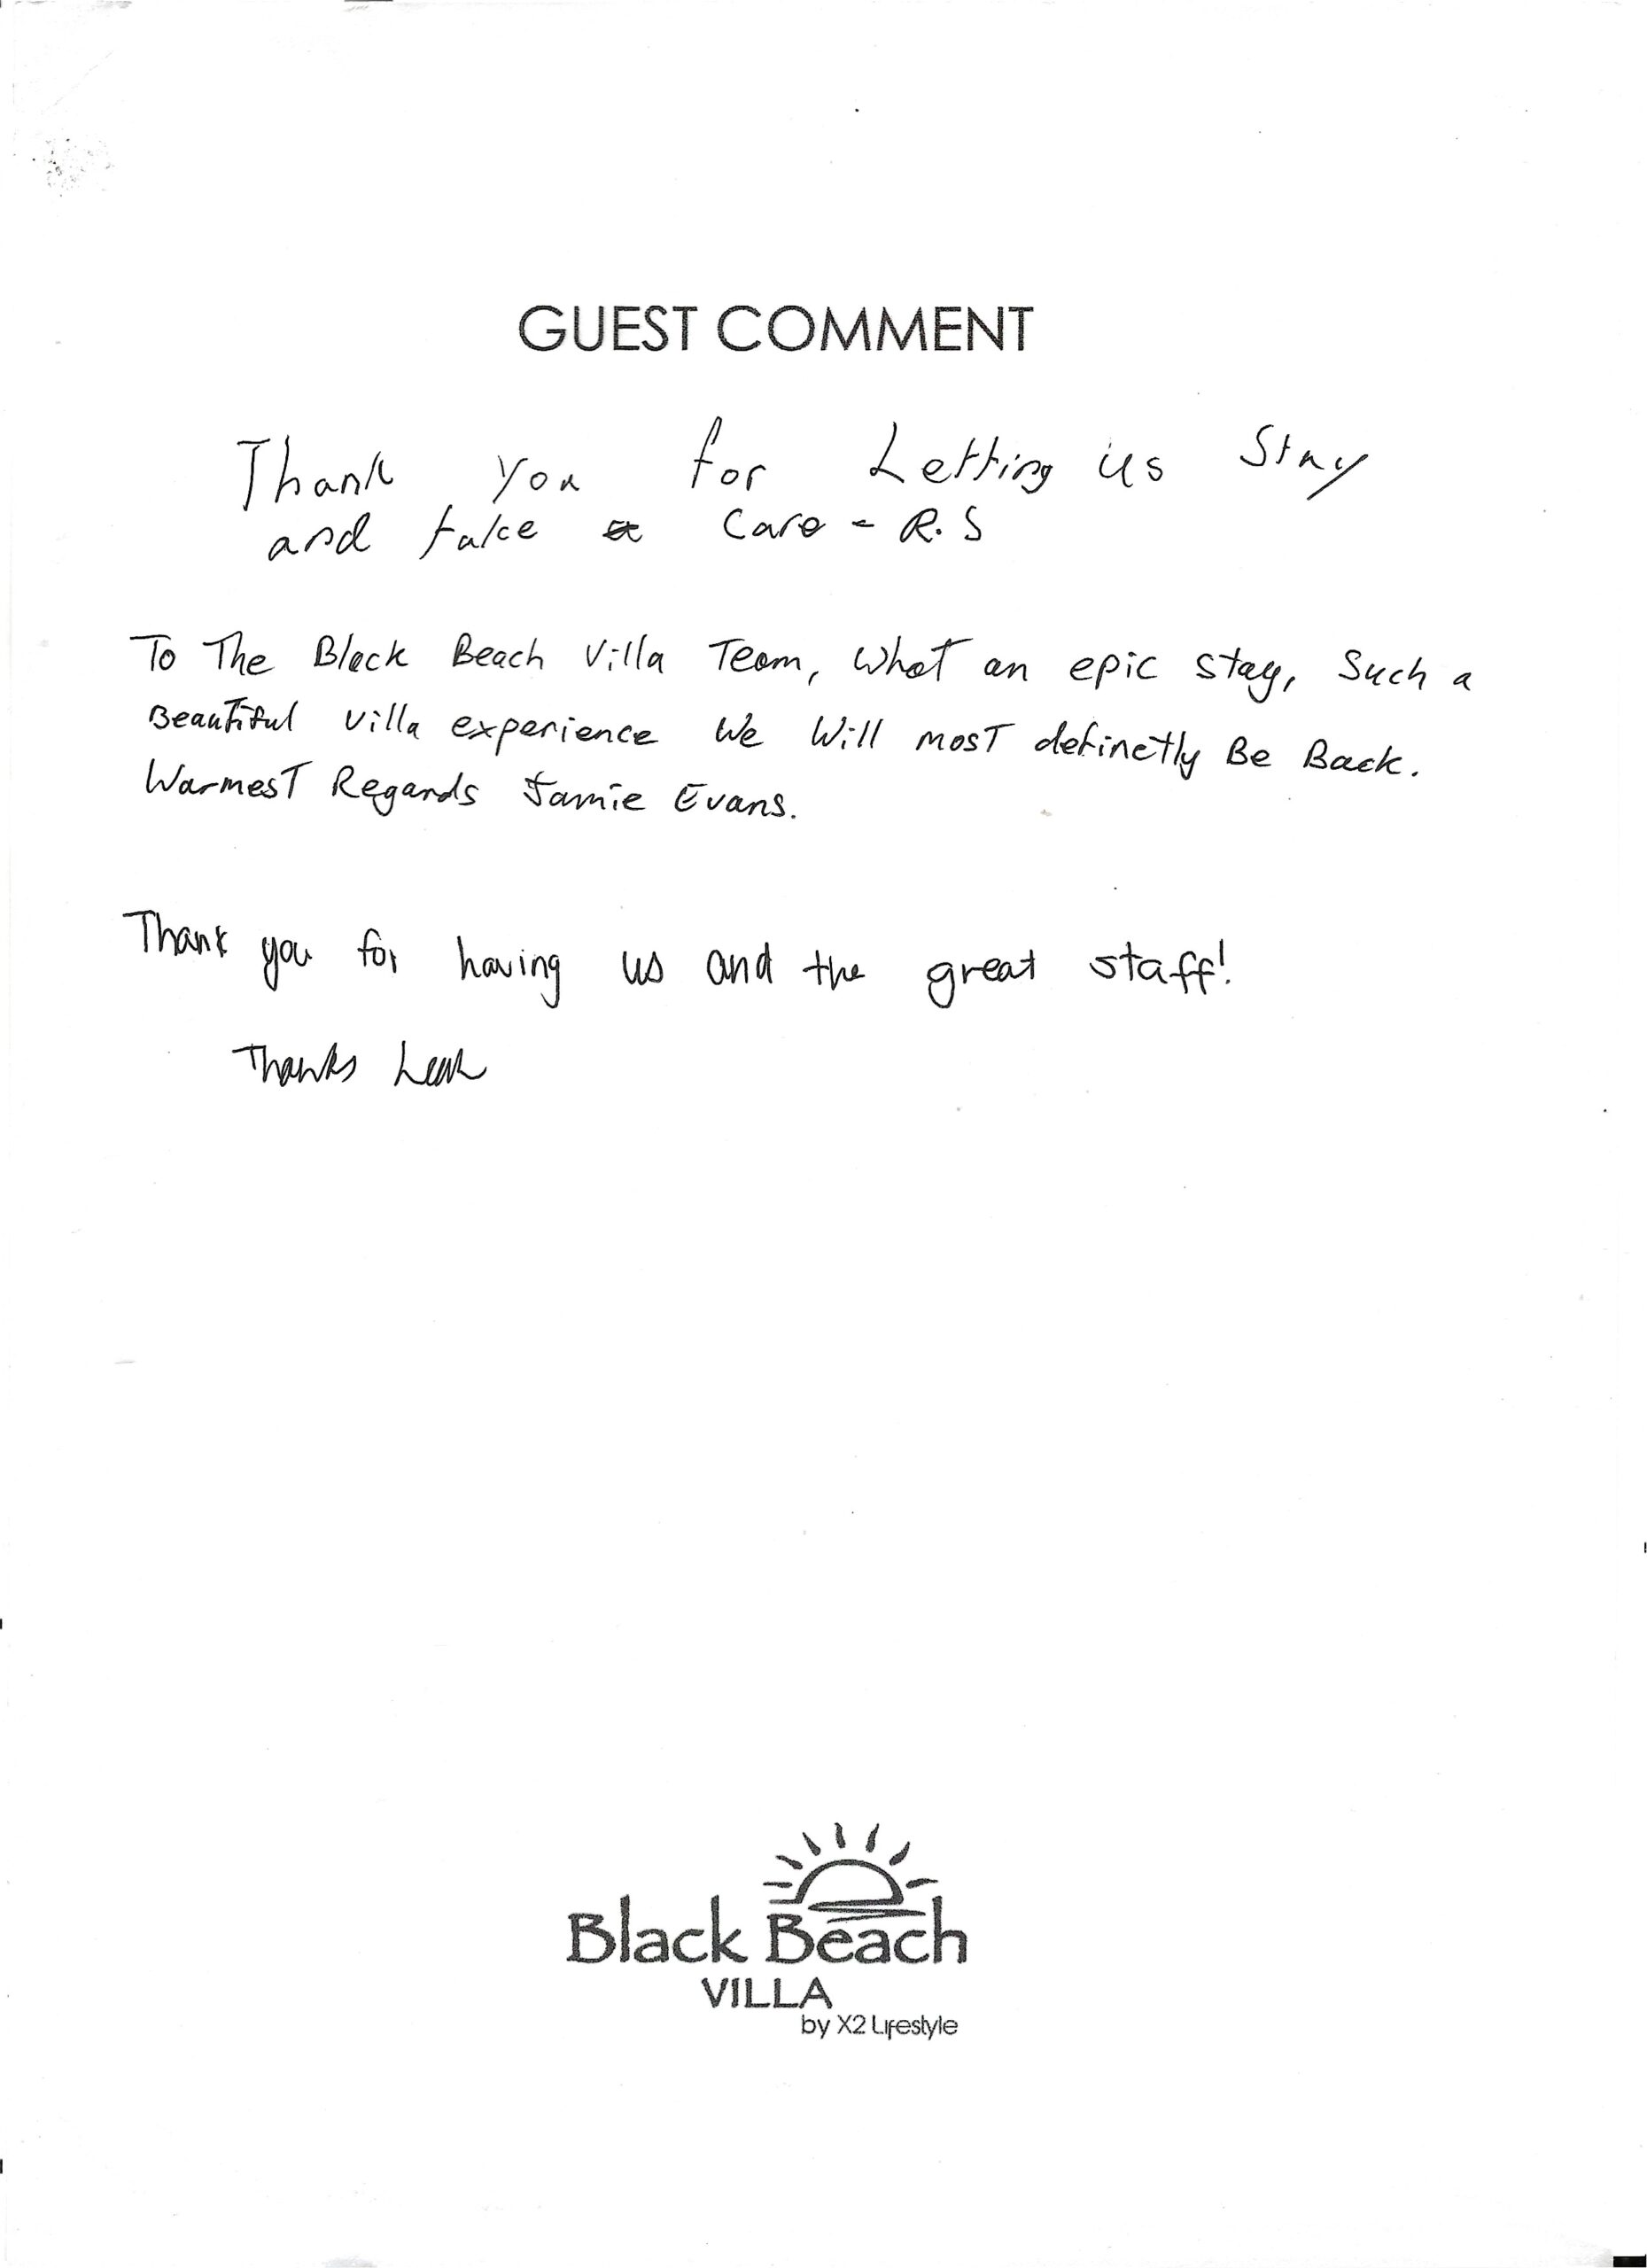 GUEST COMMENT
Thank you for Letting us Stay
and take a Care - R.S
To The Black Beach Villa Team, What an epic stay, Such a
Beautiful Villa experience We Will most definetly Be Back.
Warmest Regards Jamie Evans.
Thank you for having us and the great staff!
Thanks Leah
Black Beach
VILLA
by X2 Lifestyle